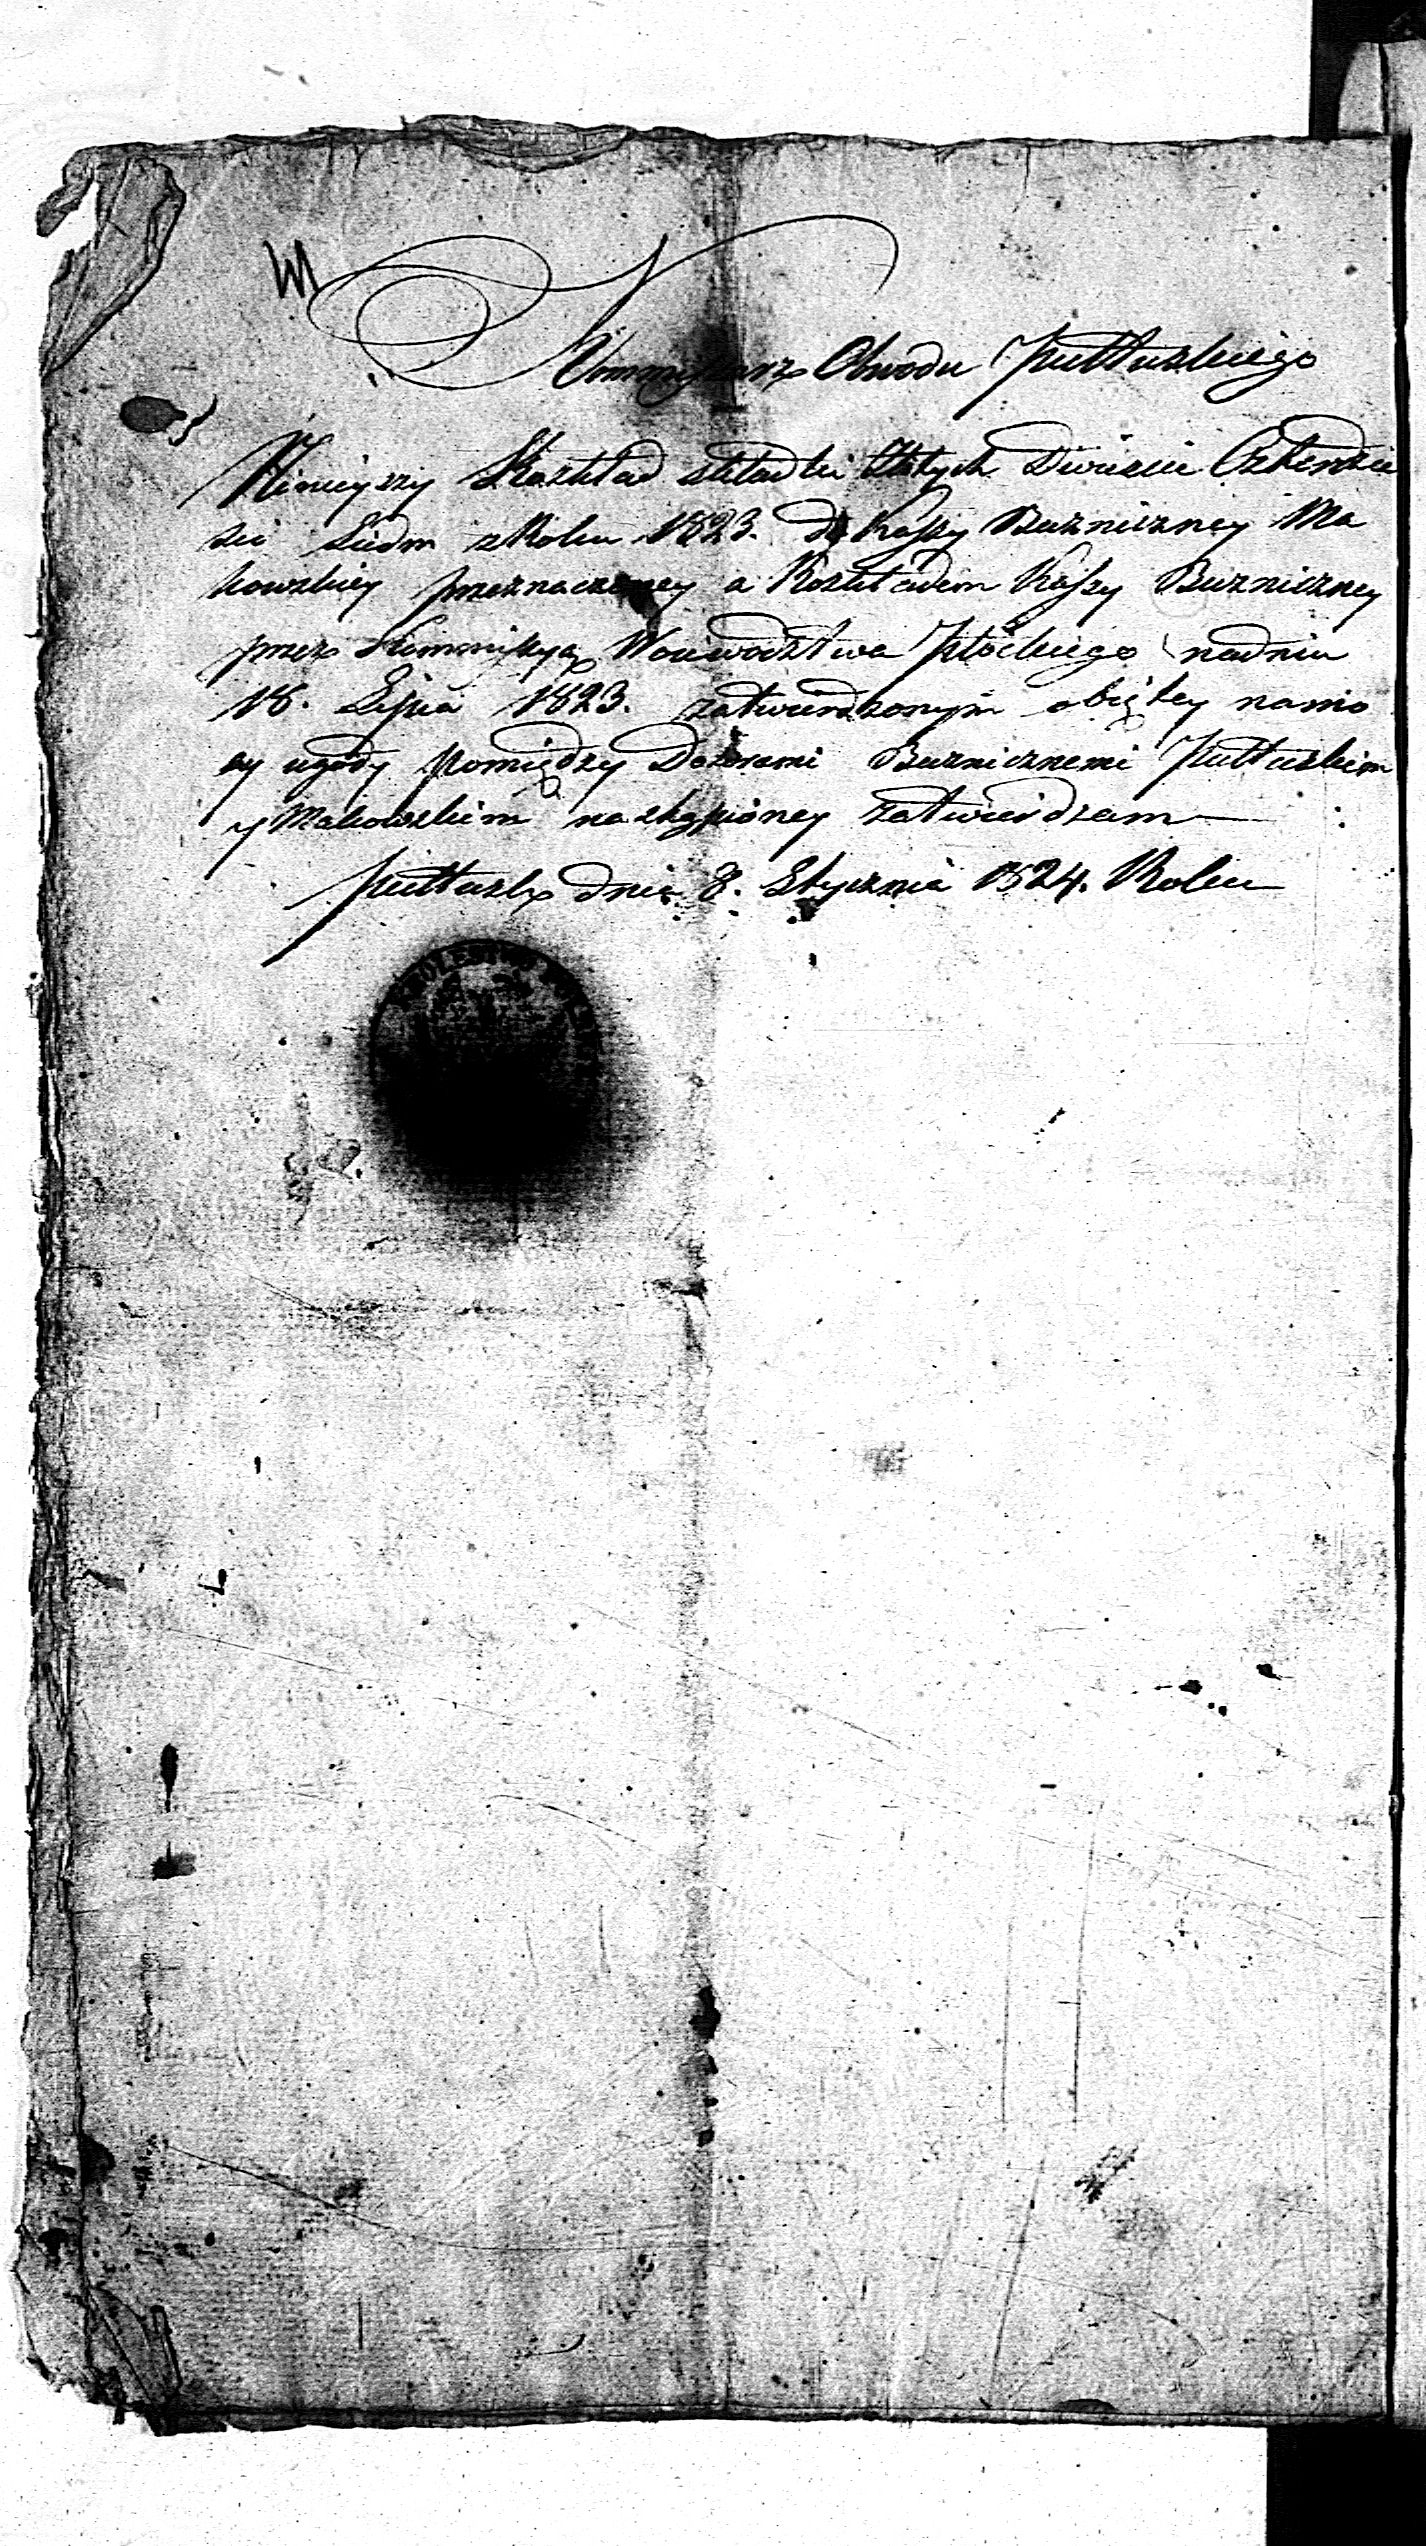 Kommissarz Obwodu Pułtuskiego
Ninieyszy Rozkład składki Złotych Dwieście Czterdzie
ści Siedm z Roku 1823. do Kassy Bużniczney Ma
kowskiey przeznaczoney a Rozkładem Kassy Bużniczney
przez Kommissyą Woiewództwa Płóckiego na dniu
18. Lipca 1823. zatwierdzonym obiętey na mo
cy ugody pomiędzy Dozorami Bużnicznemi Pułtuskim
y Makowskim nastąpioney zatwierdzam
Pułtusk dnia 8. Stycznia 1824. Roku
KRÓLESTWO POLSKIE